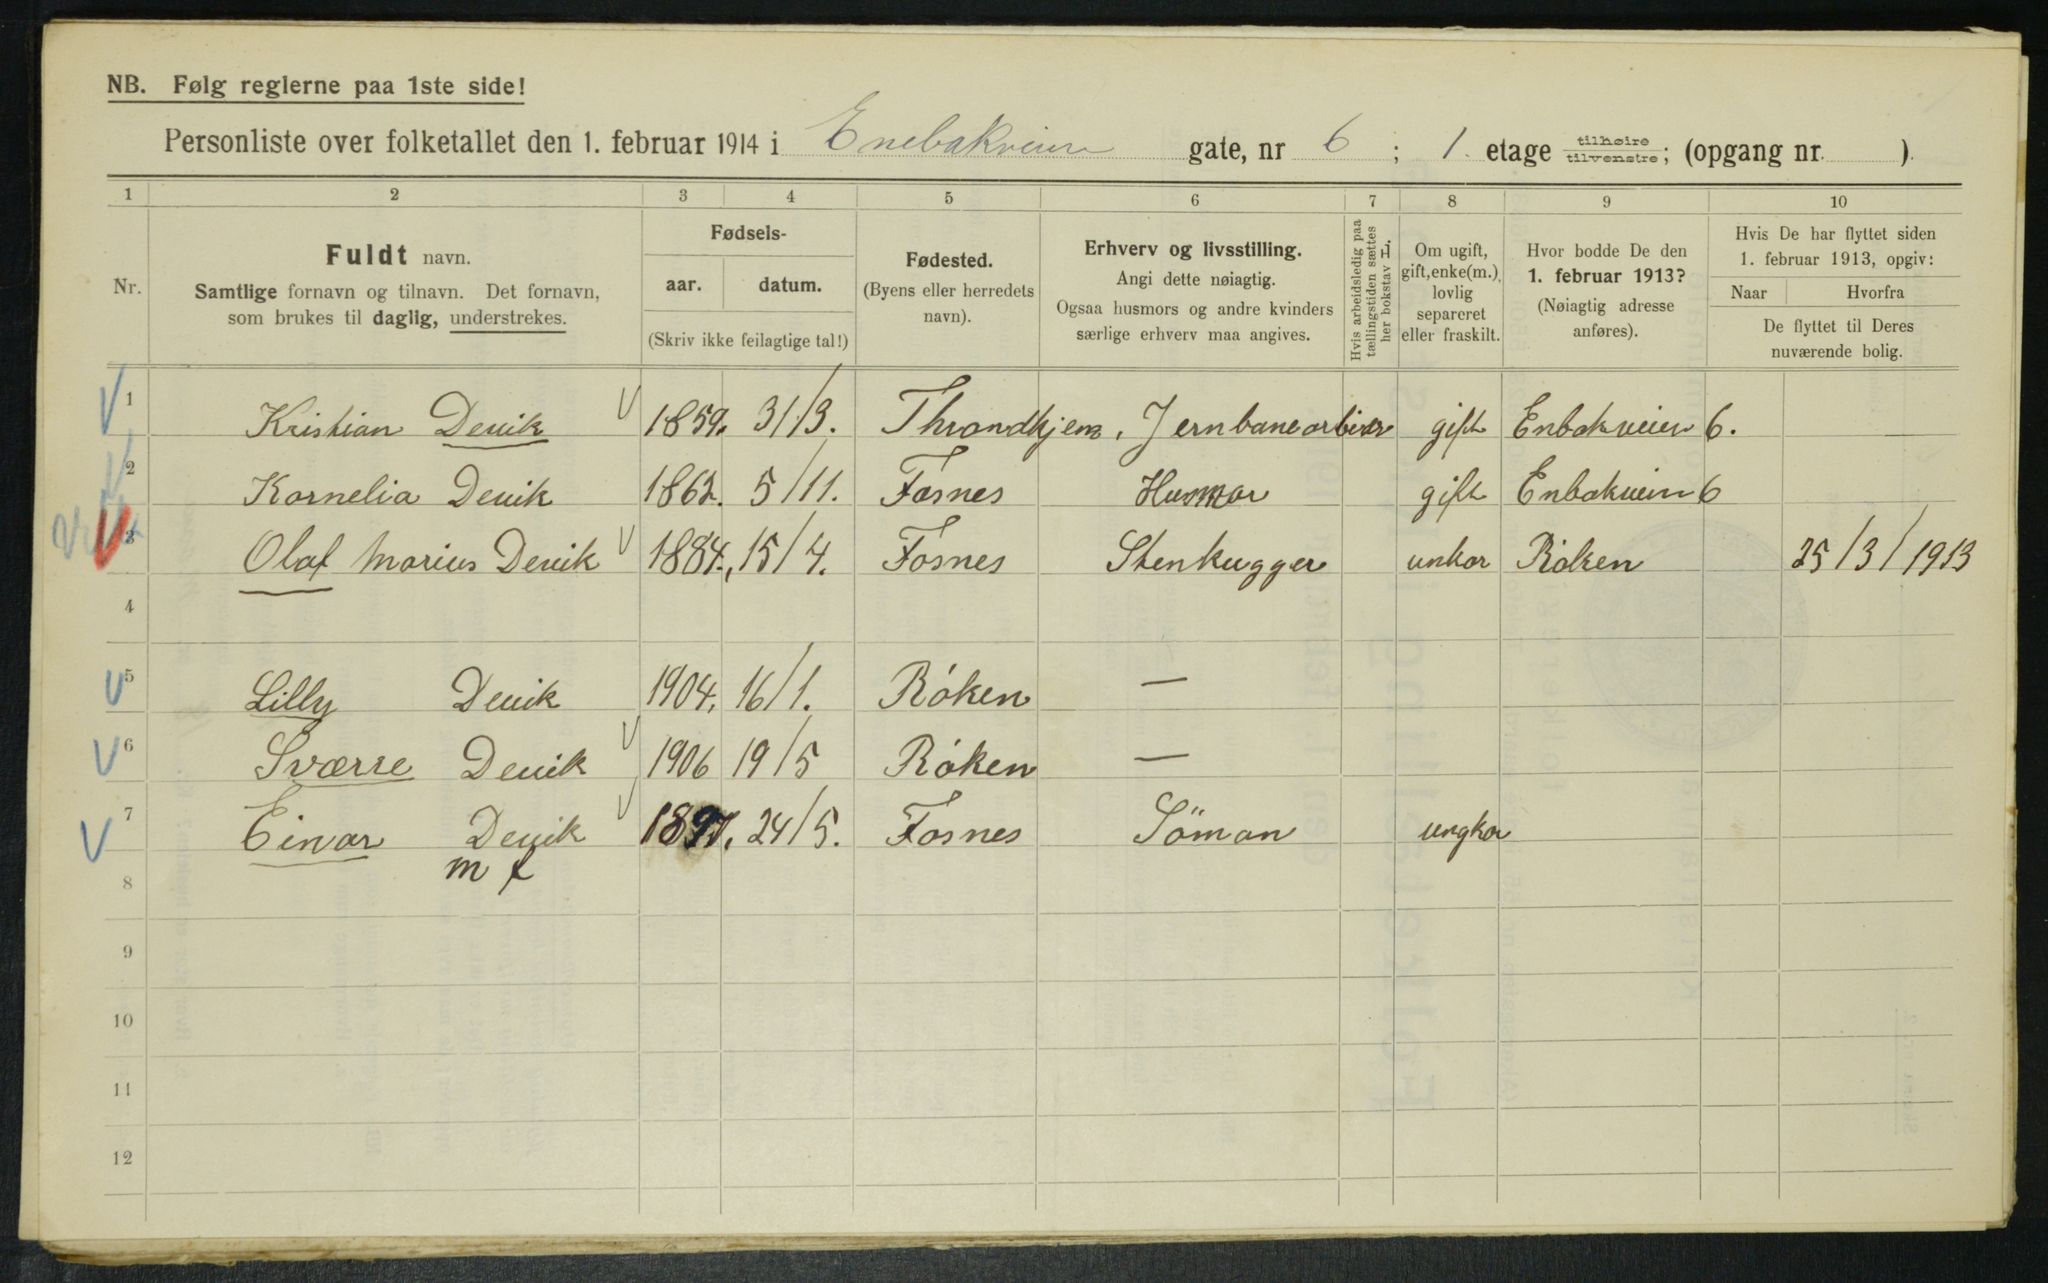 NB. Følg reglerne paa 1ste side!
Personliste over folketallet den 1. februar 1914 i Enebakveien gate, nr 6 ; 1. etage tilhøire tilvenstre; (opgang nr. ).
1 2 3 4 5 6 7 8 9 10
Nr.
Fuldt navn.
Samtlige fornavn og tilnavn. Det fornavn,
som brukes til daglig, understrekes.
Fødsels-
aar. datum.
(Skriv ikke feilagtige tal!)
Fødested.
(Byens eller herredets
navn).
Erhverv og livsstilling.
Angi dette nøiagtig.
Ogsaa husmors og andre kvinders
særlige erhverv maa angives.
Hvis arbeidsledig paa
tællingstiden sættes
her bokstav L.
Om ugift,
gift, enke(m.),
lovlig
separeret
eller fraskilt.
Hvor bodde De den
1. februar 1913?
(Nøiagtig adresse
anføres).
Hvis De har flyttet siden
1. februar 1913, opgiv:
Naar Hvorfra
De flyttet til Deres
nuværende bolig.
1 Kristian Devik 1859. 31/3. Throndkjem, Jernbanearbier gift Enbakveien 6.
2 Kornelia Devik 1862. 5/11. Fosnes Husmor gift Enbakveien 6
3 Olaf Marius Devik 1884., 15/4. Fosnes Stenhugger unkar Róken 25/3/1913
4
5 Lilly Devik 1904. 16/1. Róken —
6 Sværre Devik 1906 19/5 Róken —
7 Einar Devik 1897. 24/5. Fosnes Söman ungkar
m f
8
9
10
11
12